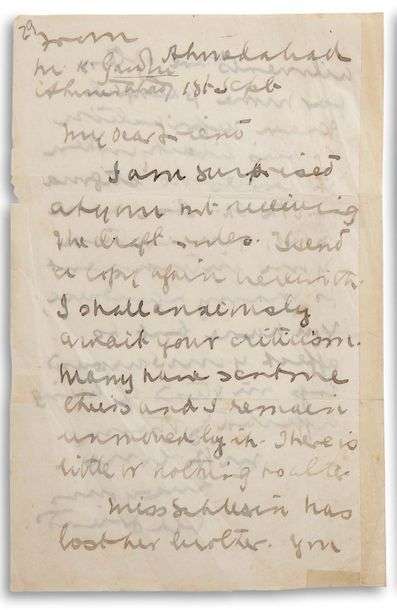 29
From
M. K. Gandhi Ahmedabad
Ahmedabad 1st Sept
My dear friend
I am surprised
at your not receiving
the draft rules. I send
a copy again herewith.
I shall anxiously
await your criticism.
Many have sent me
theirs and I remain
unmoved by it. There is
little or nothing to alter.
Miss Schlesin has
lost her brother. You